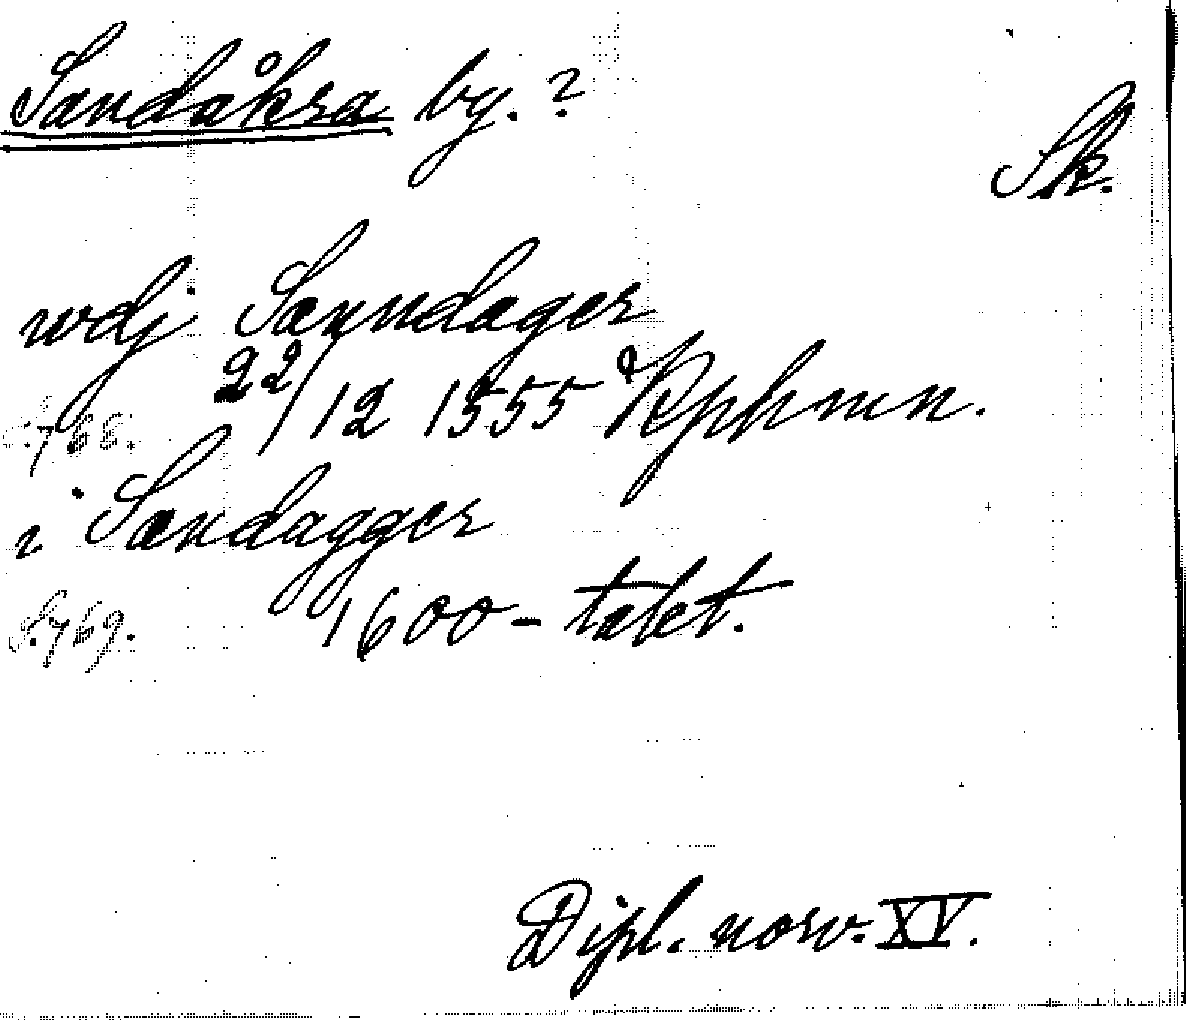 Sandåkra by. ?
Sk.
wdj Sanndager
22/12 1555 Kphmn.
s. 768.
i Sandagger
s. 769. 1600-talet.
Dipl. norv. XV.